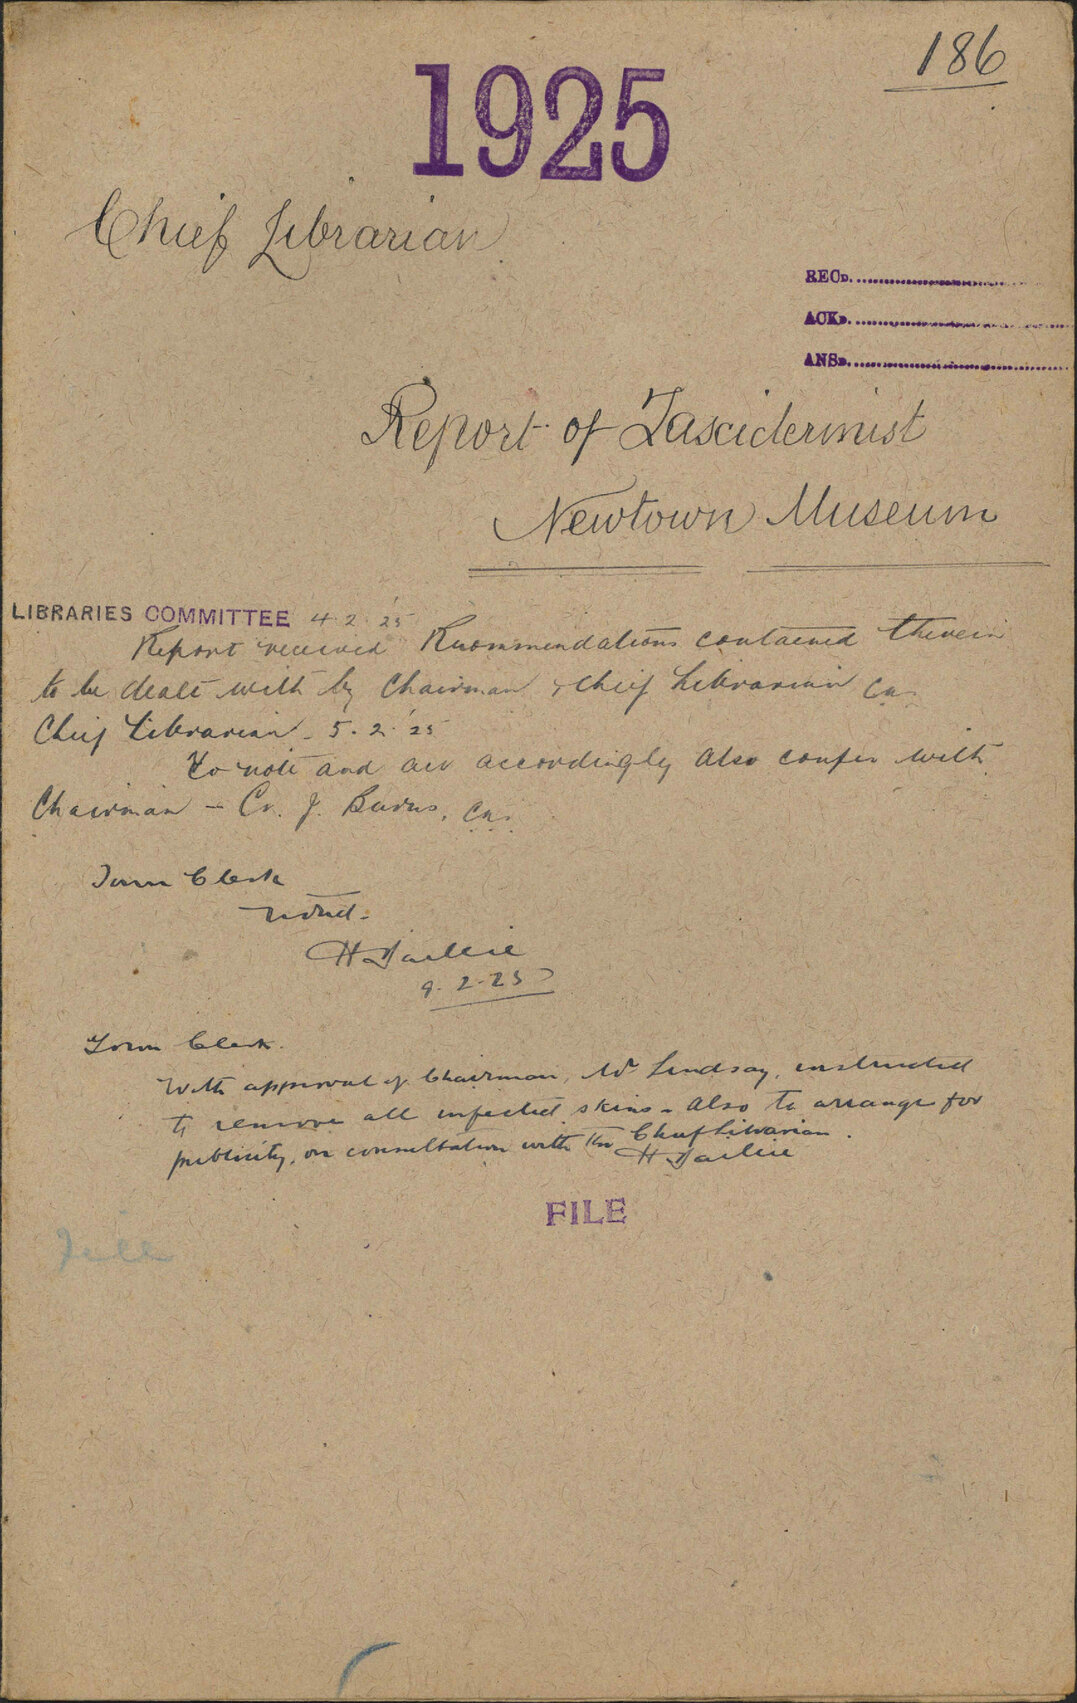 186
1925
Chief Librarian
RECD.
ACKD.
ANSD.
Report of Taxcidermist
Newtown Museum
LIBRARIES COMMITTEE 4 2 '25
Report received Recommendations contained therein
to be dealt with by Chairman & Chief Librarian
Chief Librarian - 5.2.'25
To note and act accordingly also confer with
Chairman - Cr. J. Burns.
Town Clerk
Noted.
H Baillie
9.2.25
Town Clerk.
With approval of Chairman, Mr Lindsay, instructed
to remove all infected skins - also to arrange for
publicity, on consultation with the Chief Librarian.
H Baillie
FILE
File